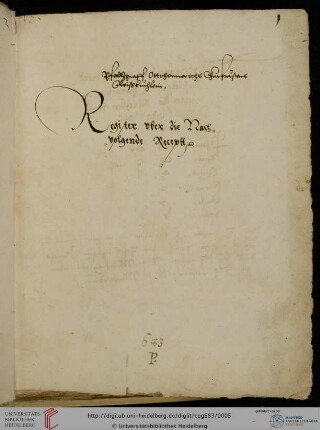 1
Pfaltzgraff Ottheinrichs
Register vber die Nach
volgende Recept
643
P.
UNIVERSITÄTS-
BIBLIOTHEK
HEIDELBERG
http://digi.ub.uni-heidelberg.de/diglit/cpg683/0005
© Universitätsbibliothek Heidelberg